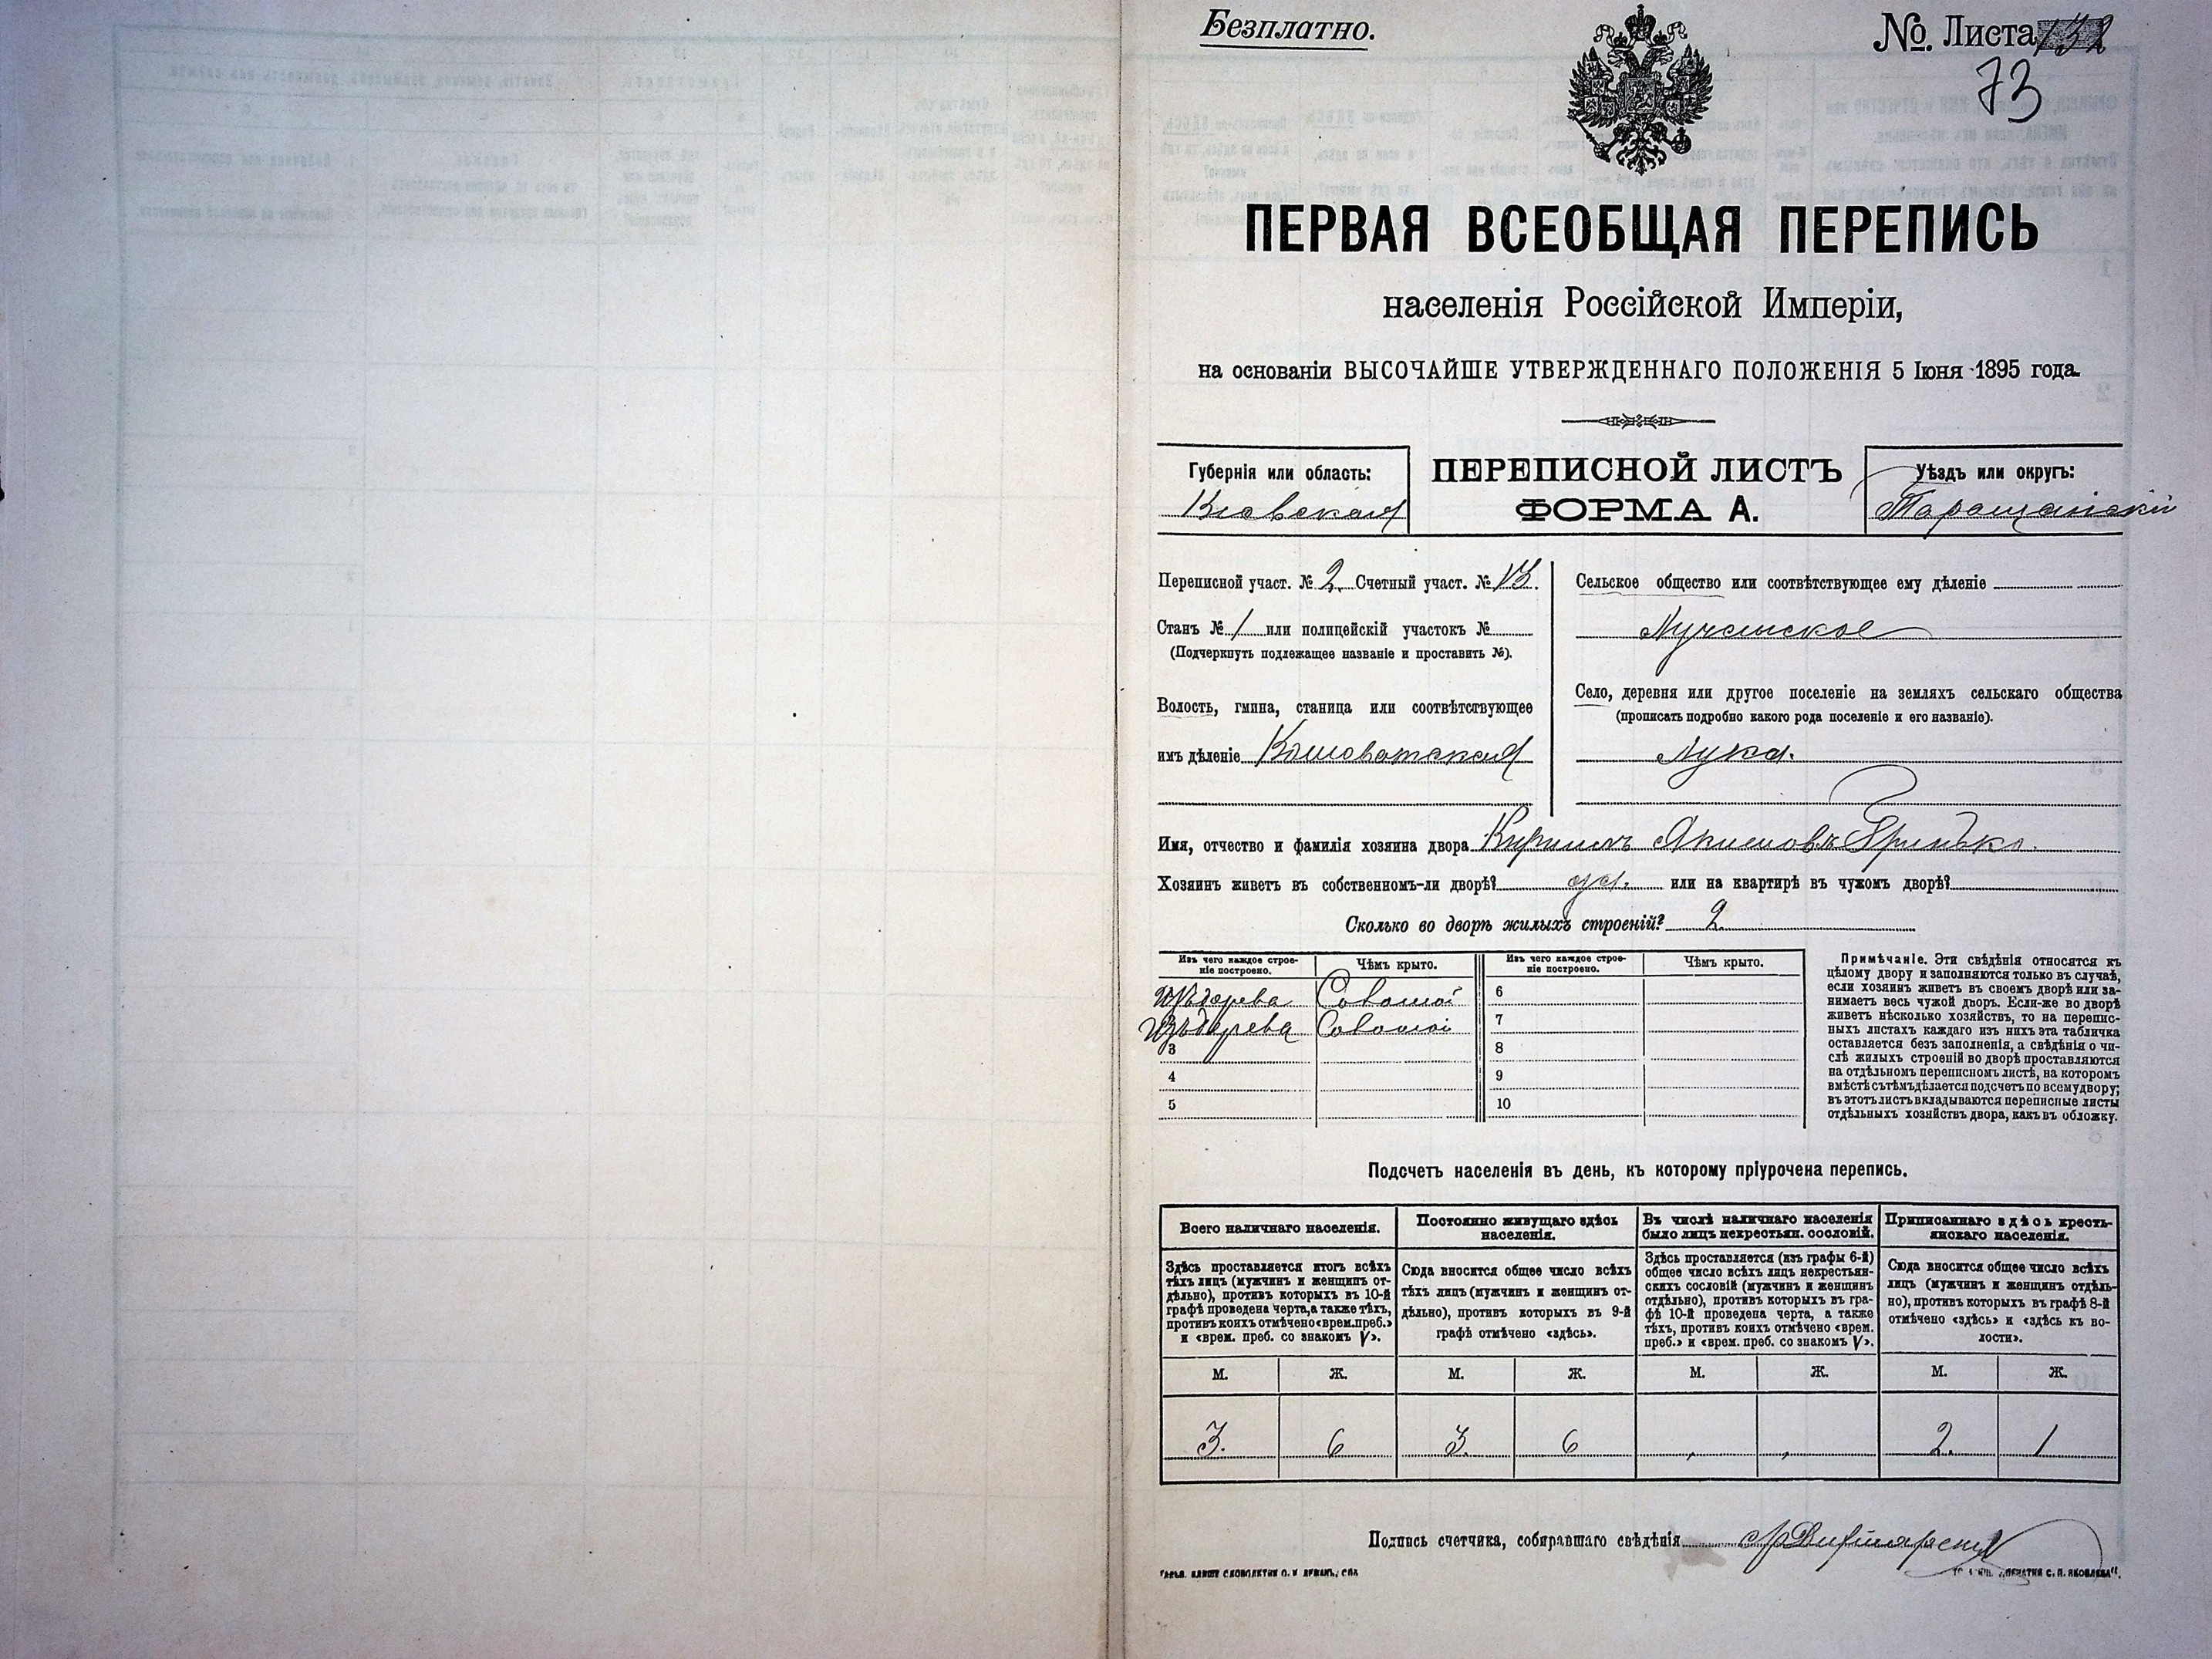 Безплатно.
№. Листа 132
73
ПЕРВАЯ ВСЕОБЩАЯ ПЕРЕПИСЬ
населенія Россійской Имперіи,
на основаніи ВЫСОЧАЙШЕ УТВЕРЖДЕННАГО ПОЛОЖЕНІЯ 5 Іюня 1895 года.
Губернія или область:
Кіевская
ПЕРЕПИСНОЙ ЛИСТЪ
ФОРМА А.
Уѣздъ или округъ:
Таращанскій
Переписной участ. № 2. Счетный участ. № 13.
Станъ № 1 или полицейскій участокъ №
(Подчеркнуть подлежащее названіе и проставить №).
Волость, гмина, станица или соотвѣтствующее
имъ дѣленіе Кошоватская
Сельское общество или соотвѣтствующее ему дѣленіе
Лучанское
Село, деревня или другое поселеніе на земляхъ сельскаго общества
(прописать подробно какого рода поселеніе и его названіе).
Лука.
Имя, отчество и фамилія хозяина двора Кириллъ Якимовъ Гринько.
Хозяинъ живетъ въ собственномъ-ли дворѣ? да. или на квартирѣ въ чужомъ дворѣ?
Сколько во дворѣ жилыхъ строеній? 2
Изъ чего каждое строе-
ніе построено.
Чѣмъ крыто.
Изъ чего каждое строе-
ніе построено.
Чѣмъ крыто.
Изъ дерева Соломой 6
Изъ дерева Соломой 7
3 8
4 9
5 10
Примѣчаніе. Эти свѣдѣнія относятся къ
цѣлому двору и заполняются только въ случаѣ,
если хозяинъ живетъ въ своемъ дворѣ или за-
нимаетъ весь чужой дворъ. Если-же во дворѣ
живетъ нѣсколько хозяйствъ, то на перепис-
ныхъ листахъ каждаго изъ нихъ эта табличка
оставляется безъ заполненія, а свѣдѣнія о чи-
слѣ жилыхъ строеній во дворѣ проставляются
на отдѣльномъ переписномъ листѣ, на которомъ
вмѣстѣ съ тѣмъ дѣлается подсчетъ по всему двору;
въ этотъ листъ вкладываются переписные листы
отдѣльныхъ хозяйствъ двора, какъ въ обложку.
Подсчетъ населенія въ день, къ которому пріурочена перепись.
Всего наличнаго населенія.
Здѣсь проставляется итогъ всѣхъ
тѣхъ лицъ (мужчинъ и женщинъ от-
дѣльно), противъ которыхъ въ 10-й
графѣ проведена черта, а также тѣхъ,
противъ коихъ отмѣчено «врем. преб.»
и «врем. преб. со знакомъ V».
Постоянно живущаго здѣсь
населенія.
Сюда вносится общее число всѣхъ
тѣхъ лицъ (мужчинъ и женщинъ от-
дѣльно), противъ которыхъ въ 9-й
графѣ отмѣчено «здѣсь».
Въ числѣ наличнаго населенія
было лицъ некрестьян. сословій.
Здѣсь проставляется (изъ графы 6-й)
общее число всѣхъ лицъ некрестьян-
скихъ сословій (мужчинъ и женщинъ
отдѣльно), противъ которыхъ въ гра-
фѣ 10-й проведена черта, а также
тѣхъ, противъ коихъ отмѣчено «врем.
преб.» и «врем. преб. со знакомъ V».
Приписаннаго здѣсь кресть-
янскаго населенія.
Сюда вносится общее число всѣхъ
лицъ (мужчинъ и женщинъ отдѣль-
но), противъ которыхъ въ графѣ 8-й
отмѣчено «здѣсь» и «здѣсь къ во-
лости».
М. Ж. М. Ж. М. Ж. М. Ж.
3. 6 3. 6 2. 1
Подпись счетчика, собиравшаго свѣдѣнія